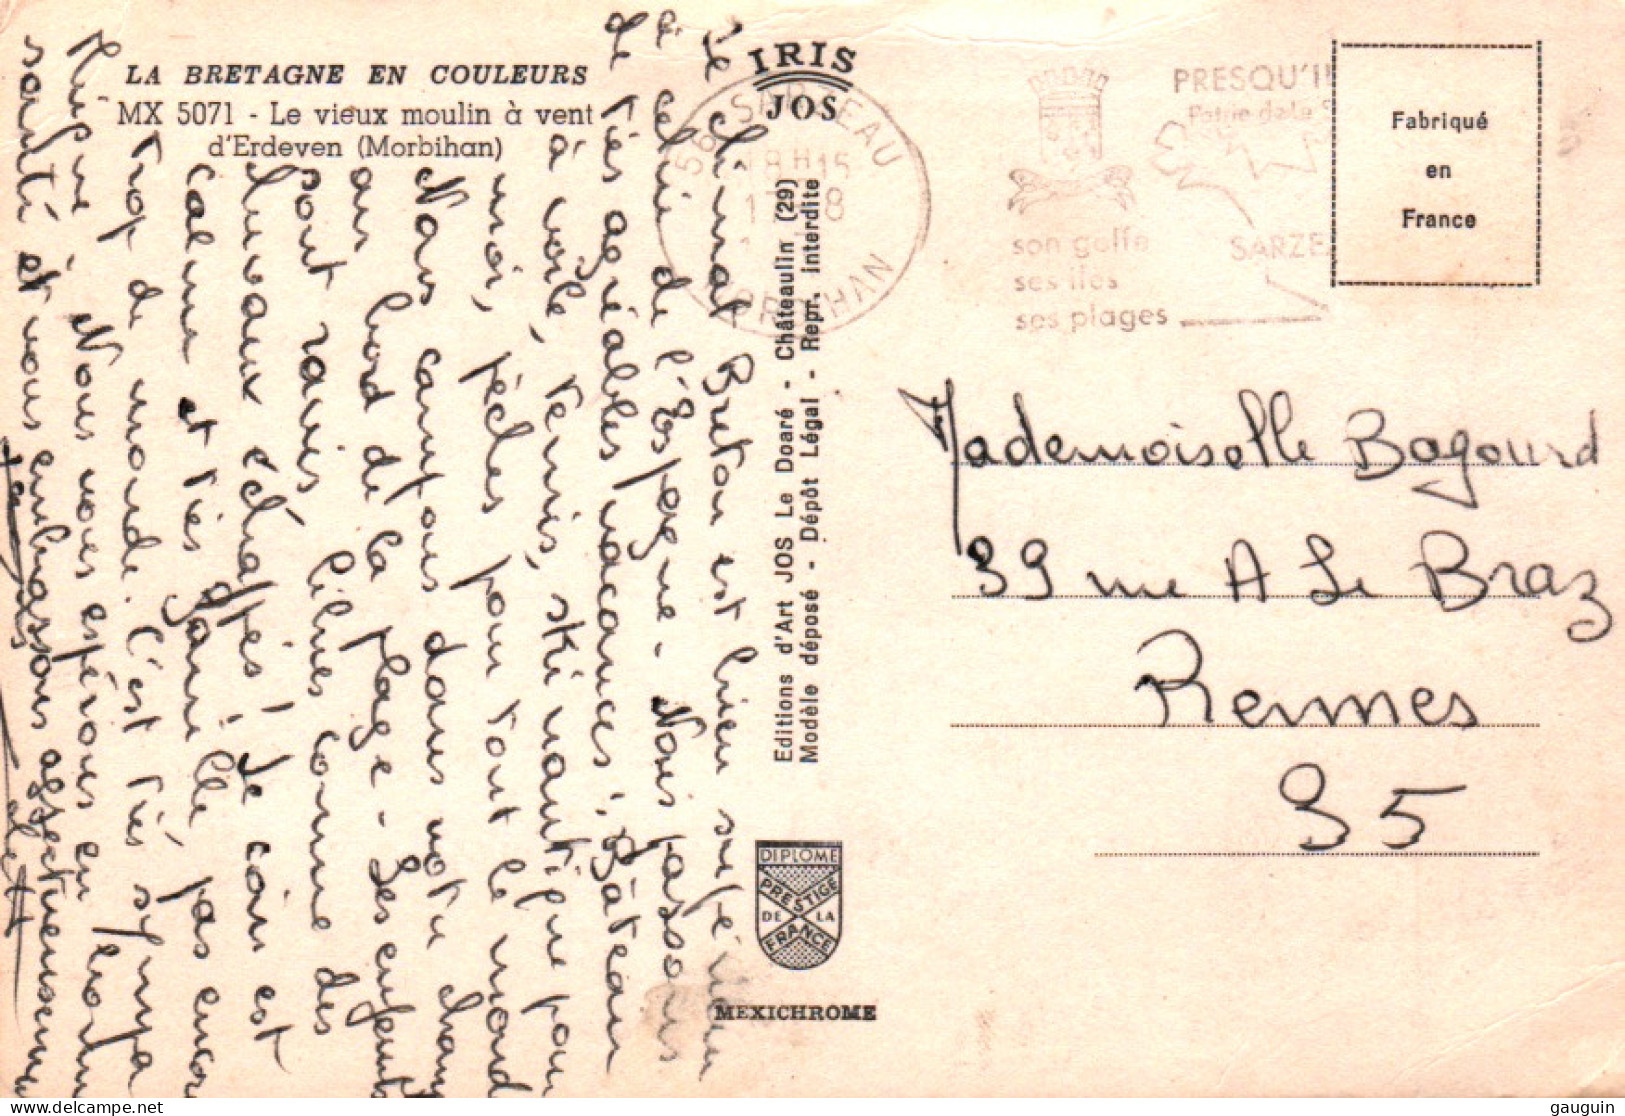 LA BRETAGNE EN COULEURS
MX 5071 - Le vieux moulin à vent
d'Erdeven (Morbihan)
IRIS
JOS
56 SARZEAU
18H15
8
MORBIHAN
PRESQU'I
Patrie de Le S
son golfe
ses iles
ses plages
SARZE
Fabriqué
en
France
Le climat Breton est bien supérieur
à celui de l'Espagne - Nous passons
de très agréables vacances ! Bâteau
à voile, tennis, ski nautique pour
moi, pêches pour tout le monde
Nous campons dans notre champ
au bord de la plage - Les enfants
sont ravis libres comme des
chevaux échappés ! Le coin est
calme et très joli pas encore
trop de monde. C'est très sympa
Nous vous espérons en bonne
santé et vous embrassons affectueusement
Editions d'Art JOS Le Doaré - Châteaulin (29)
Modèle déposé - Dépôt Légal - Repr. interdite
DIPLOME
PRESTIGE
DE LA
FRANCE
MEXICHROME
Mademoiselle Bagourd
39 rue A Le Braz
Rennes
35
gauguin © delcampe.net